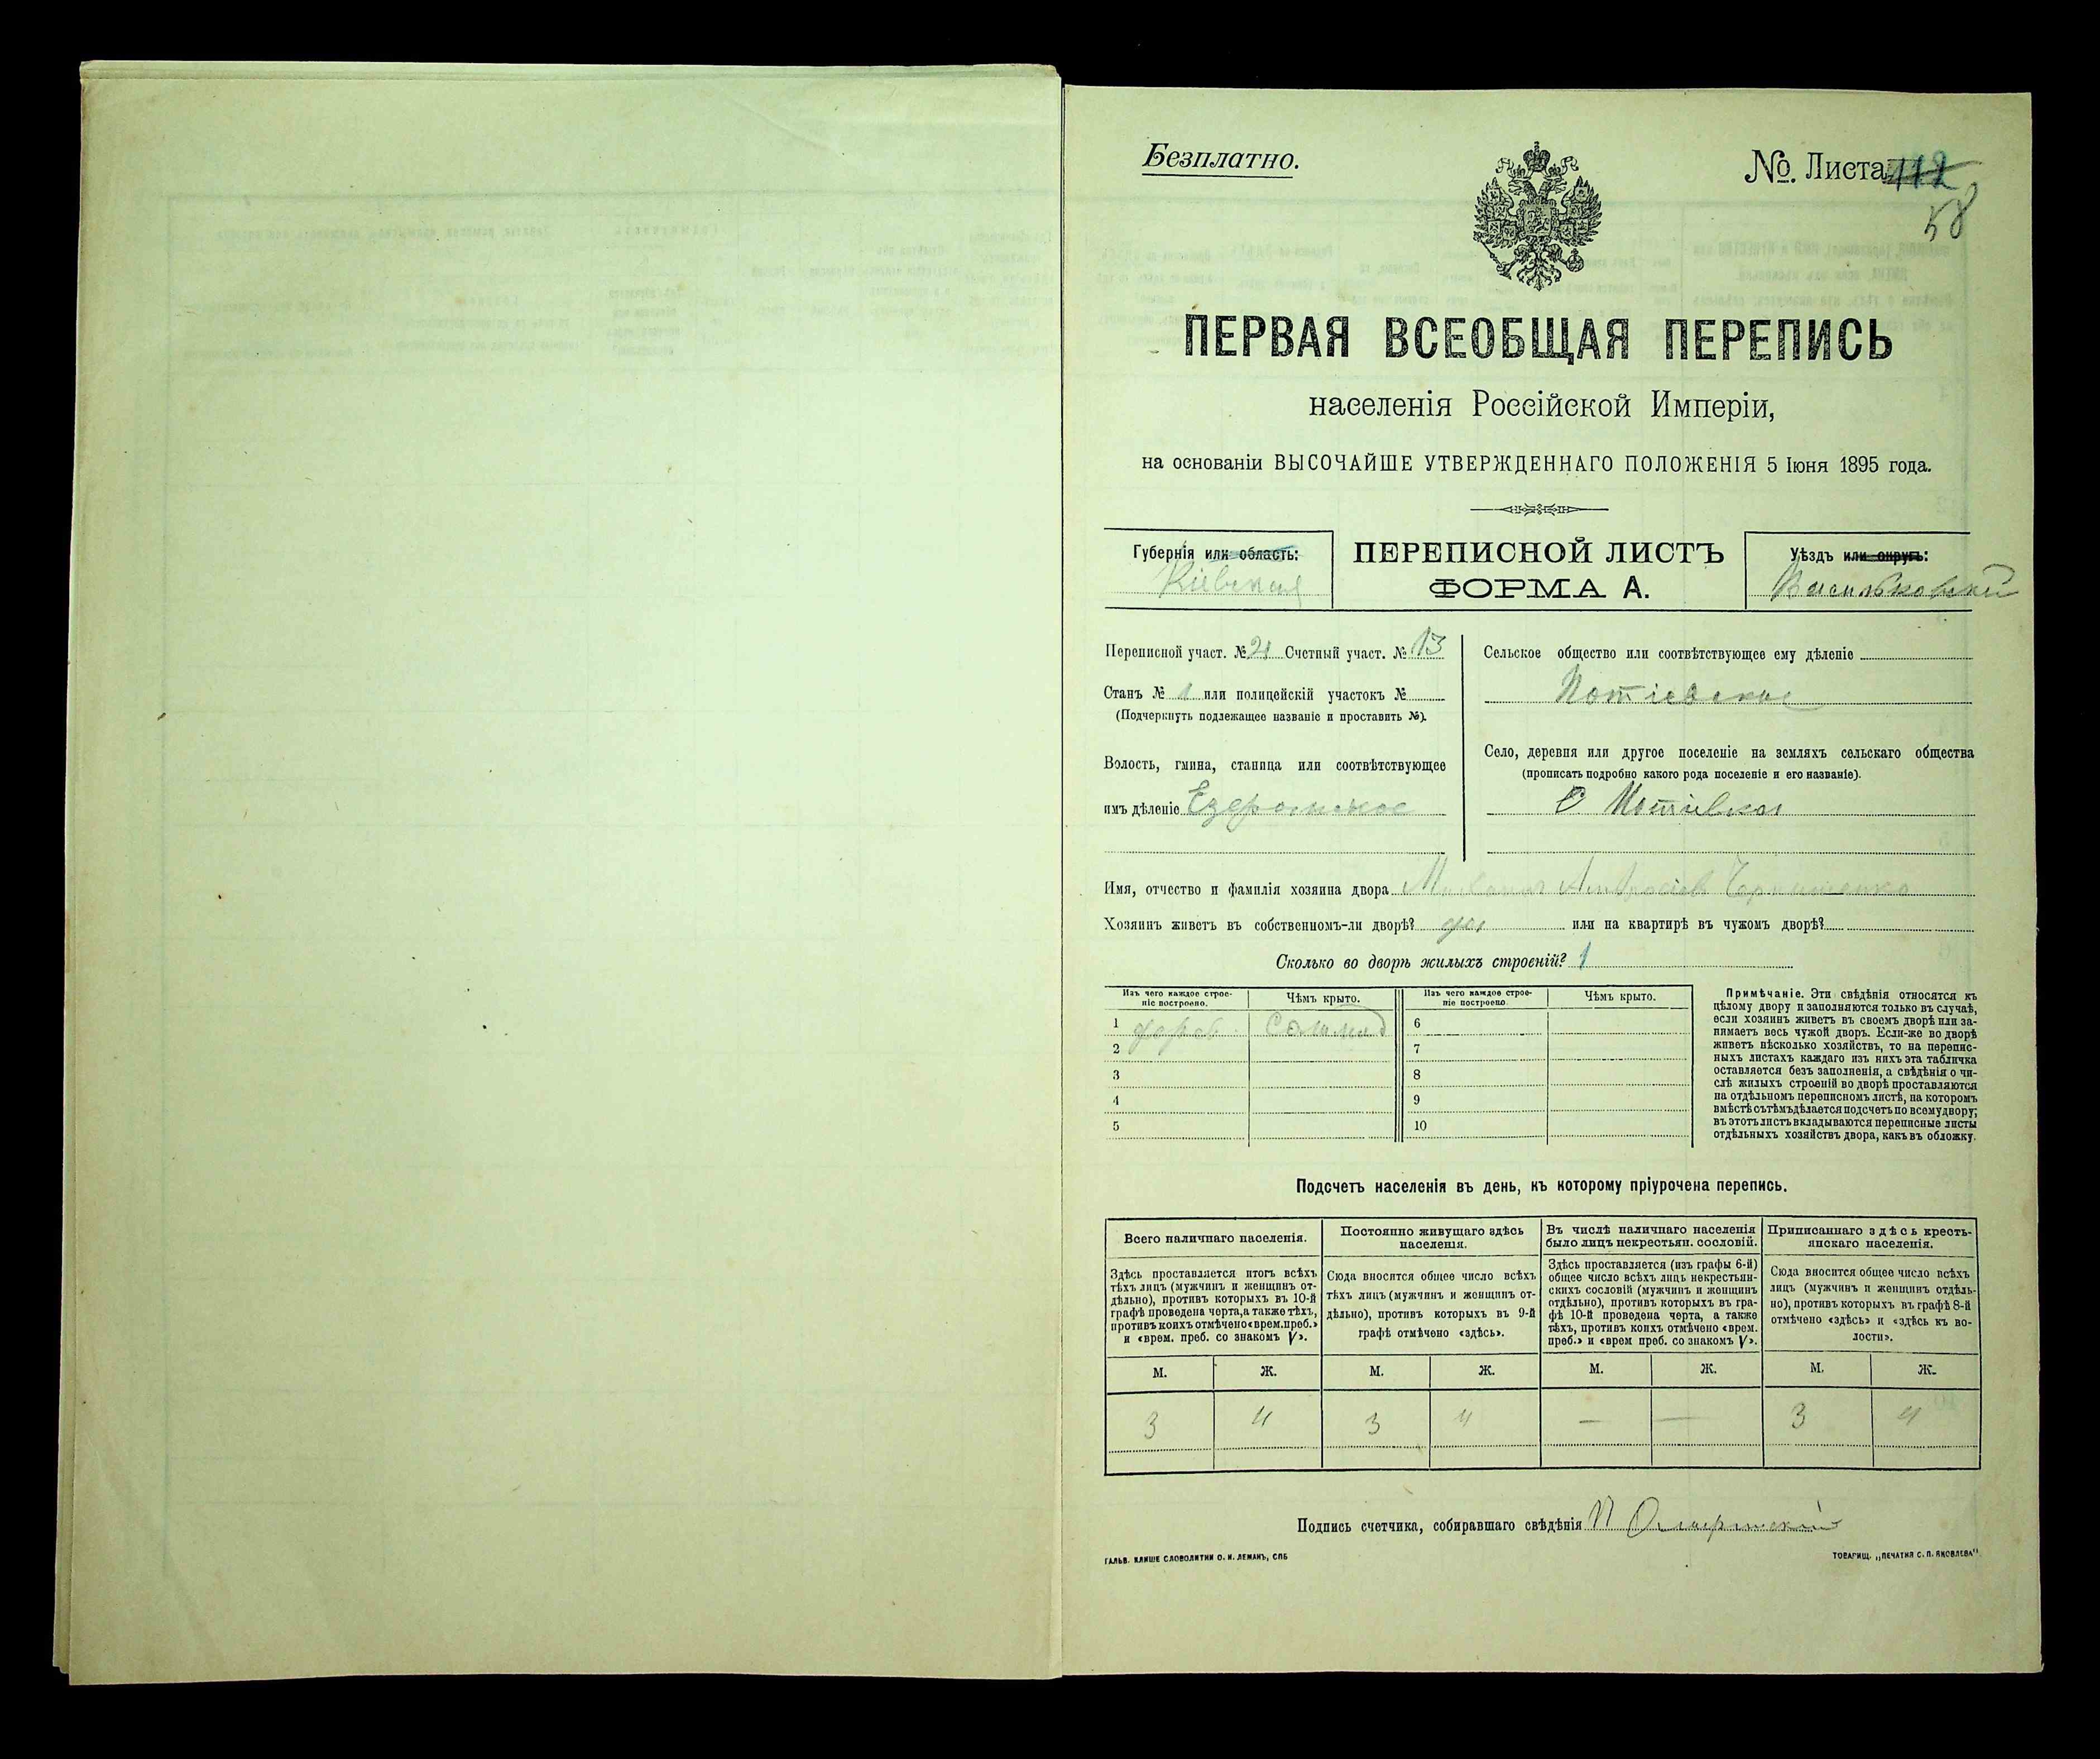 Безплатно.
№. Листа 112
58
ПЕРВАЯ ВСЕОБЩАЯ ПЕРЕПИСЬ
населенія Россійской Имперіи,
на основаніи ВЫСОЧАЙШЕ УТВЕРЖДЕННАГО ПОЛОЖЕНІЯ 5 Іюня 1895 года.
Губернія или область:
Кіевская
ПЕРЕПИСНОЙ ЛИСТЪ
ФОРМА А.
Уѣздъ или округъ:
Васильковскій
Переписной участ. № 21 Счетный участ. № 13
Станъ № 1 или полицейскій участокъ №
(Подчеркнуть подлежащее названіе и проставить №).
Волость, гмина, станица или соотвѣтствующее
имъ дѣленіе
Сельское общество или соотвѣтствующее ему дѣленіе
Потіевское
Село, деревня или другое поселеніе на земляхъ сельскаго общества
(прописать подробно какого рода поселеніе и его названіе).
С. Потіевка
Имя, отчество и фамилія хозяина двора
Хозяинъ живетъ въ собственномъ-ли дворѣ? да или на квартирѣ въ чужомъ дворѣ?
Сколько во дворѣ жилыхъ строеній? 1
Изъ чего каждое строе-
ніе построено.
Чѣмъ крыто.
Изъ чего каждое строе-
ніе построено.
Чѣмъ крыто.
1 дерев. Солома 6
2 7
3 8
4 9
5 10
Примѣчаніе. Эти свѣдѣнія относятся къ
цѣлому двору и заполняются только въ случаѣ,
если хозяинъ живетъ въ своемъ дворѣ или за-
нимаетъ весь чужой дворъ. Если-же во дворѣ
живетъ нѣсколько хозяйствъ, то на перепис-
ныхъ листахъ каждаго изъ нихъ эта табличка
оставляется безъ заполненія, а свѣдѣнія о чи-
слѣ жилыхъ строеній во дворѣ проставляются
на отдѣльномъ переписномъ листѣ, на которомъ
вмѣстѣ съ тѣмъ дѣлается подсчетъ по всему двору;
въ этотъ листъ вкладываются переписные листы
отдѣльныхъ хозяйствъ двора, какъ въ обложку.
Подсчетъ населенія въ день, къ которому пріурочена перепись.
Всего наличнаго населенія.
Здѣсь проставляется итогъ всѣхъ
тѣхъ лицъ (мужчинъ и женщинъ от-
дѣльно), противъ которыхъ въ 10-й
графѣ проведена черта, а также тѣхъ,
противъ коихъ отмѣчено «врем. преб.»
и «врем. преб. со знакомъ V».
Постоянно живущаго здѣсь
населенія.
Сюда вносится общее число всѣхъ
тѣхъ лицъ (мужчинъ и женщинъ от-
дѣльно), противъ которыхъ въ 9-й
графѣ отмѣчено «здѣсь».
Въ числѣ наличнаго населенія
было лицъ некрестьян. сословій.
Здѣсь проставляется (изъ графы 6-й)
общее число всѣхъ лицъ некрестьян-
скихъ сословій (мужчинъ и женщинъ
отдѣльно), противъ которыхъ въ гра-
фѣ 10-й проведена черта, а также
тѣхъ, противъ коихъ отмѣчено «врем.
преб.» и «врем преб. со знакомъ V».
Приписаннаго здѣсь кресть-
янскаго населенія.
Сюда вносится общее число всѣхъ
лицъ (мужчинъ и женщинъ отдѣль-
но), противъ которыхъ въ графѣ 8-й
отмѣчено «здѣсь» и «здѣсь къ во-
лости».
М. Ж. М. Ж. М. Ж. М. Ж.
3 4 3 4 — — 3 4
Подпись счетчика, собиравшаго свѣдѣнія
ГАЛЬВ. КЛИШЕ СЛОВОЛИТНИ О. И. ЛЕМАНЪ, СПБ
ТОВАРИЩ. „ПЕЧАТНЯ С. П. ЯКОВЛЕВА"